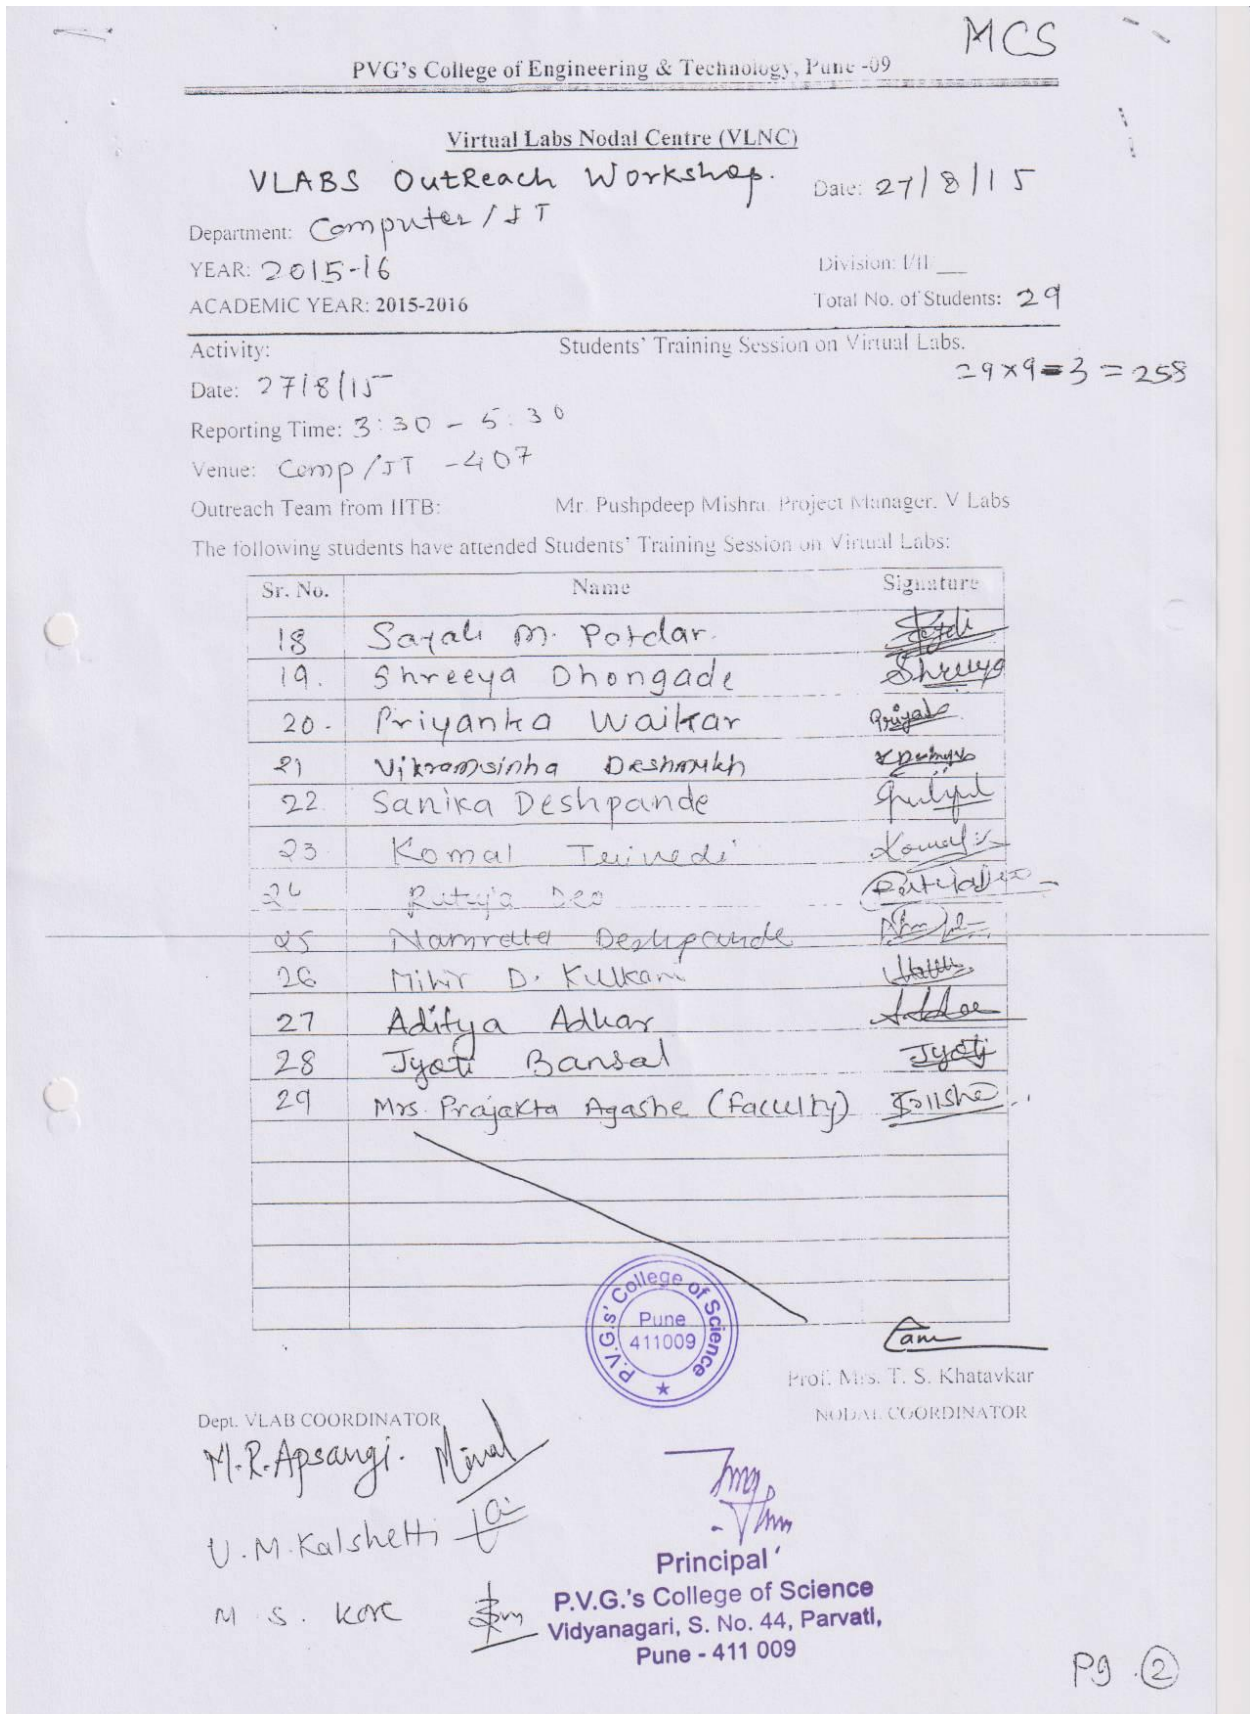 MCS
PVG's College of Engineering & Technology, Pune -09
Virtual Labs Nodal Centre (VLNC)
VLABS OutReach Workshop. Date: 27/8/15
Department: Computer/IT
YEAR: 2015-16 Division: I/II
ACADEMIC YEAR: 2015-2016 Total No. of Students: 29
Activity: Students' Training Session on Virtual Labs.
29×9-3 = 258
Date: 27/8/15
Reporting Time: 3:30 - 5:30
Venue: Comp/IT -407
Outreach Team from IITB: Mr. Pushpdeep Mishra. Project Manager. V Labs
The following students have attended Students' Training Session on Virtual Labs:
Sr. No. Name Signature
18 Sayali M. Potdar.
19. Shreeya Dhongade Shreeya
20. Priyanka Waikar
21 Vikramsinha Deshmukh
22. Sanika Deshpande
23 Komal Trivedi Komal
24 Rutuja Deo
25 Namrata Deshpande
26 Mihir D. Kulkarni
27 Aditya Adkar
28 Jyoti Bansal Jyoti
29 Mrs. Prajakta Agashe (faculty)
P.V.G.s' College of Science
Pune
411009
Prof. Mrs. T. S. Khatavkar
NODAL COORDINATOR
Dept. VLAB COORDINATOR
M.R.Apsangi.
U.M.Kalshetti
M.S. Kore
Principal
P.V.G.'s College of Science
Vidyanagari, S. No. 44, Parvati,
Pune - 411 009
Pg. 2